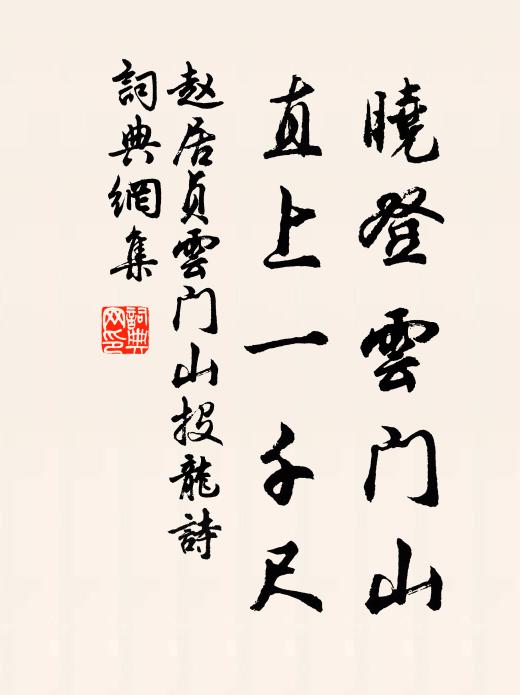 曉登雲门山
直上一千尺
赵居貞雲门山投龍詩
詞典網集
詞典网印